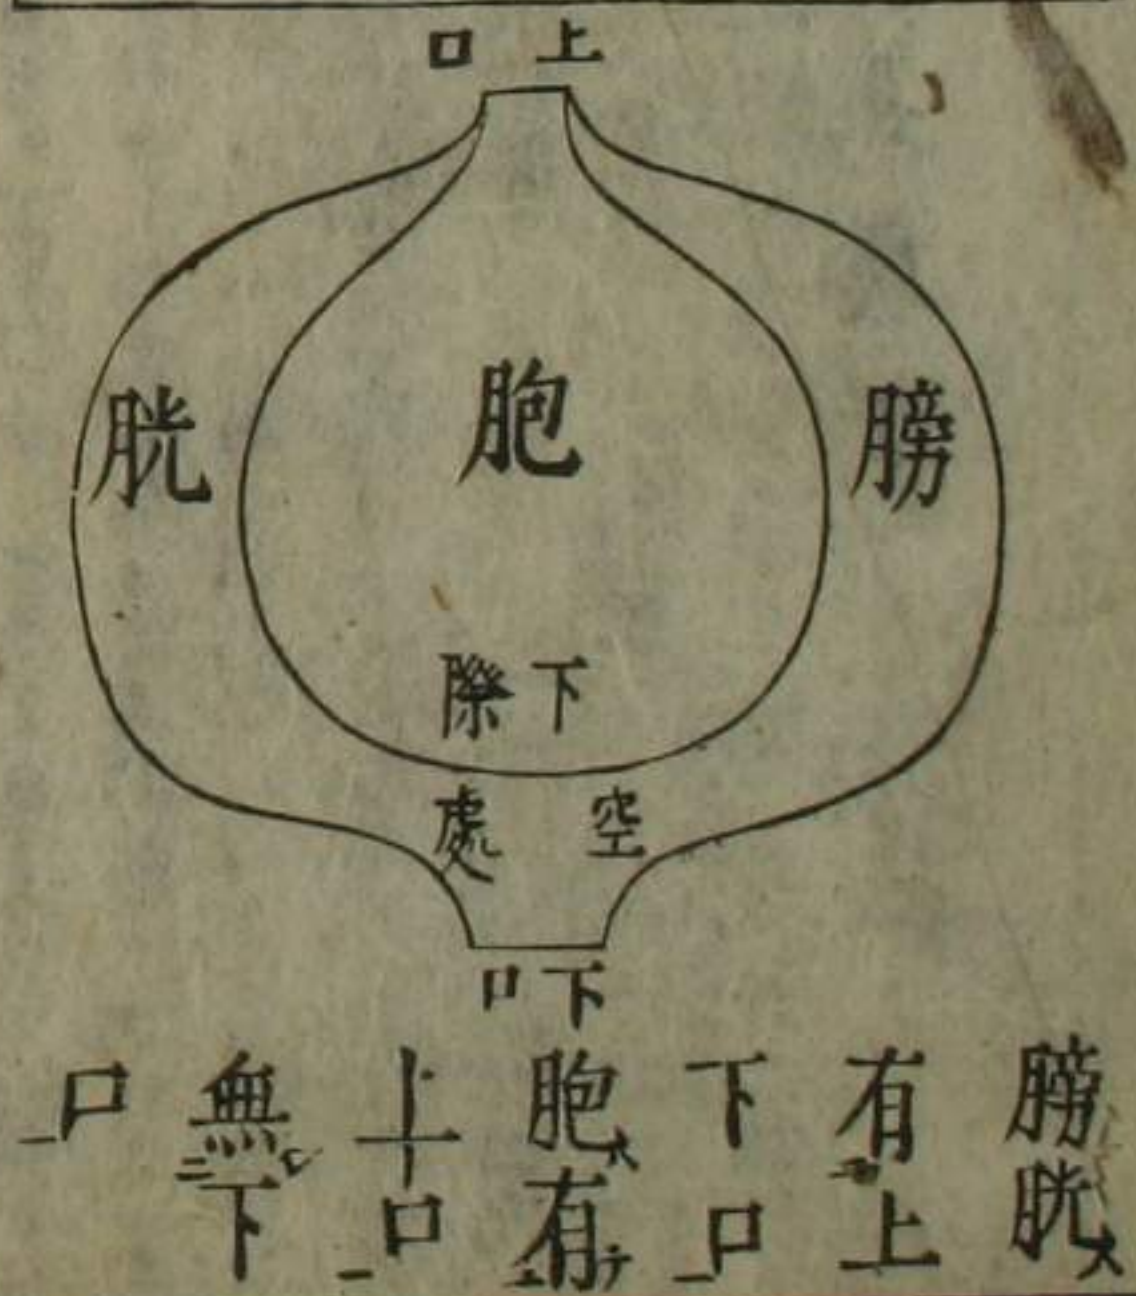 上口
膀胱
胞
下際
空處
下口
膀胱
有上
下口
胞有
上口
無下
口